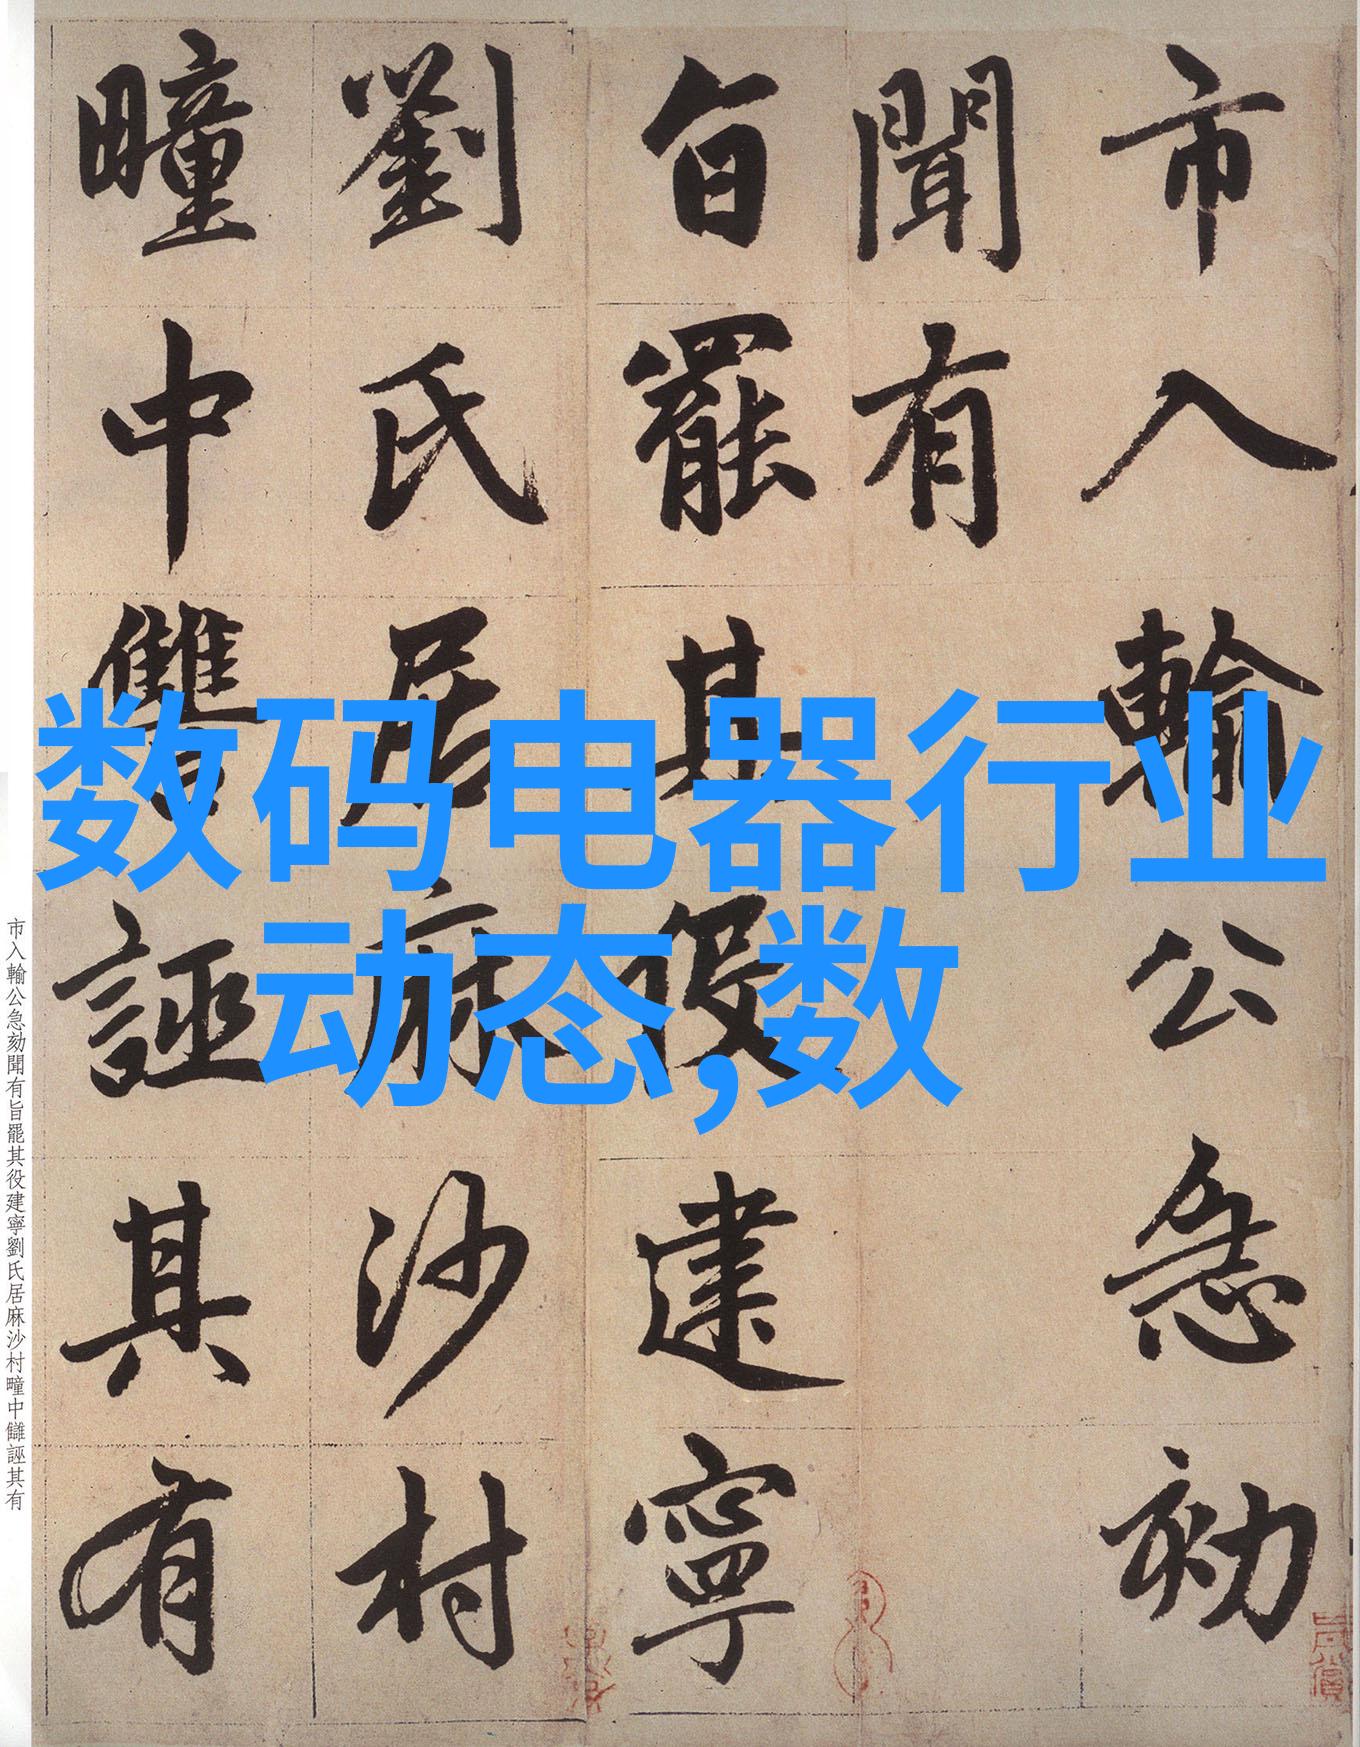 市入輸公急刻
聞有
旨罷其役建寧
劉氏居麻沙村
疃中讎誣其有
数码电器行业
动态,数
市入輸公急刻聞有旨罷其役建寧劉氏居麻沙村疃中讎誣其有